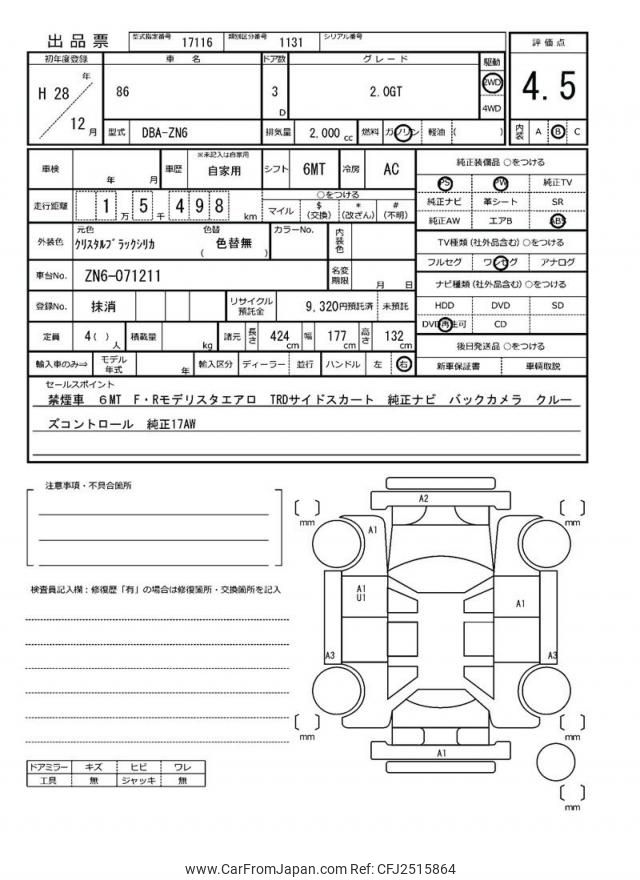 出品票 型式指定番号 17116 類別区分番号 1131 シリアル番号
初年度登録 車 名 ドア数 グレード 駆動 評価点
H 28 年 12 月 86 3 D 2.0GT 2WD 4WD 4.5
型式 DBA-ZN6 排気量 2,000 cc 燃料 ガソリン 軽油 ( ) 内装 A B C
車検 年 月 車歴 ※未記入は自家用 自家用 シフト 6MT 冷房 AC
純正装備品 ○をつける
PS PW 純正TV
純正ナビ 革シート SR
純正AW エアB ABS
走行距離 1 5 4 9 8 万 千 km
○をつける
マイル $ (交換) * (改ざん) # (不明)
外装色 元色 クリスタルブラックシリカ 色替 ( 色替無 ) カラーNo. 内装色
TV種類 (社外品含む) ○をつける
フルセグ ワンセグ アナログ
車台No. ZN6-071211 名変期限 月 日
ナビ種類 (社外品含む) ○をつける
HDD DVD SD
DVD再生可 CD
登録No. 抹消 リサイクル預託金 9,320円預託済 未預託
定員 4( ) 人 積載量 kg 諸元 長さ 424 cm 幅 177 cm 高さ 132 cm
後日発送品 ○をつける
新車保証書 車輌取説
輸入車のみ⇒ モデル年式 年 輸入区分 ディーラー 並行 ハンドル 左 右
セールスポイント
禁煙車 6MT F・Rモデリスタエアロ TRDサイドスカート 純正ナビ バックカメラ クルー
ズコントロール 純正17AW
注意事項・不具合箇所
検査員記入欄：修復歴「有」の場合は修復箇所・交換箇所を記入
ドアミラー キズ ヒビ ワレ
工具 無 ジャッキ 無
A2
mm
mm
A1
A1
U1
A1
A3
A3
mm
mm
A1
mm
www.CarFromJapan.com Ref: CFJ2515864